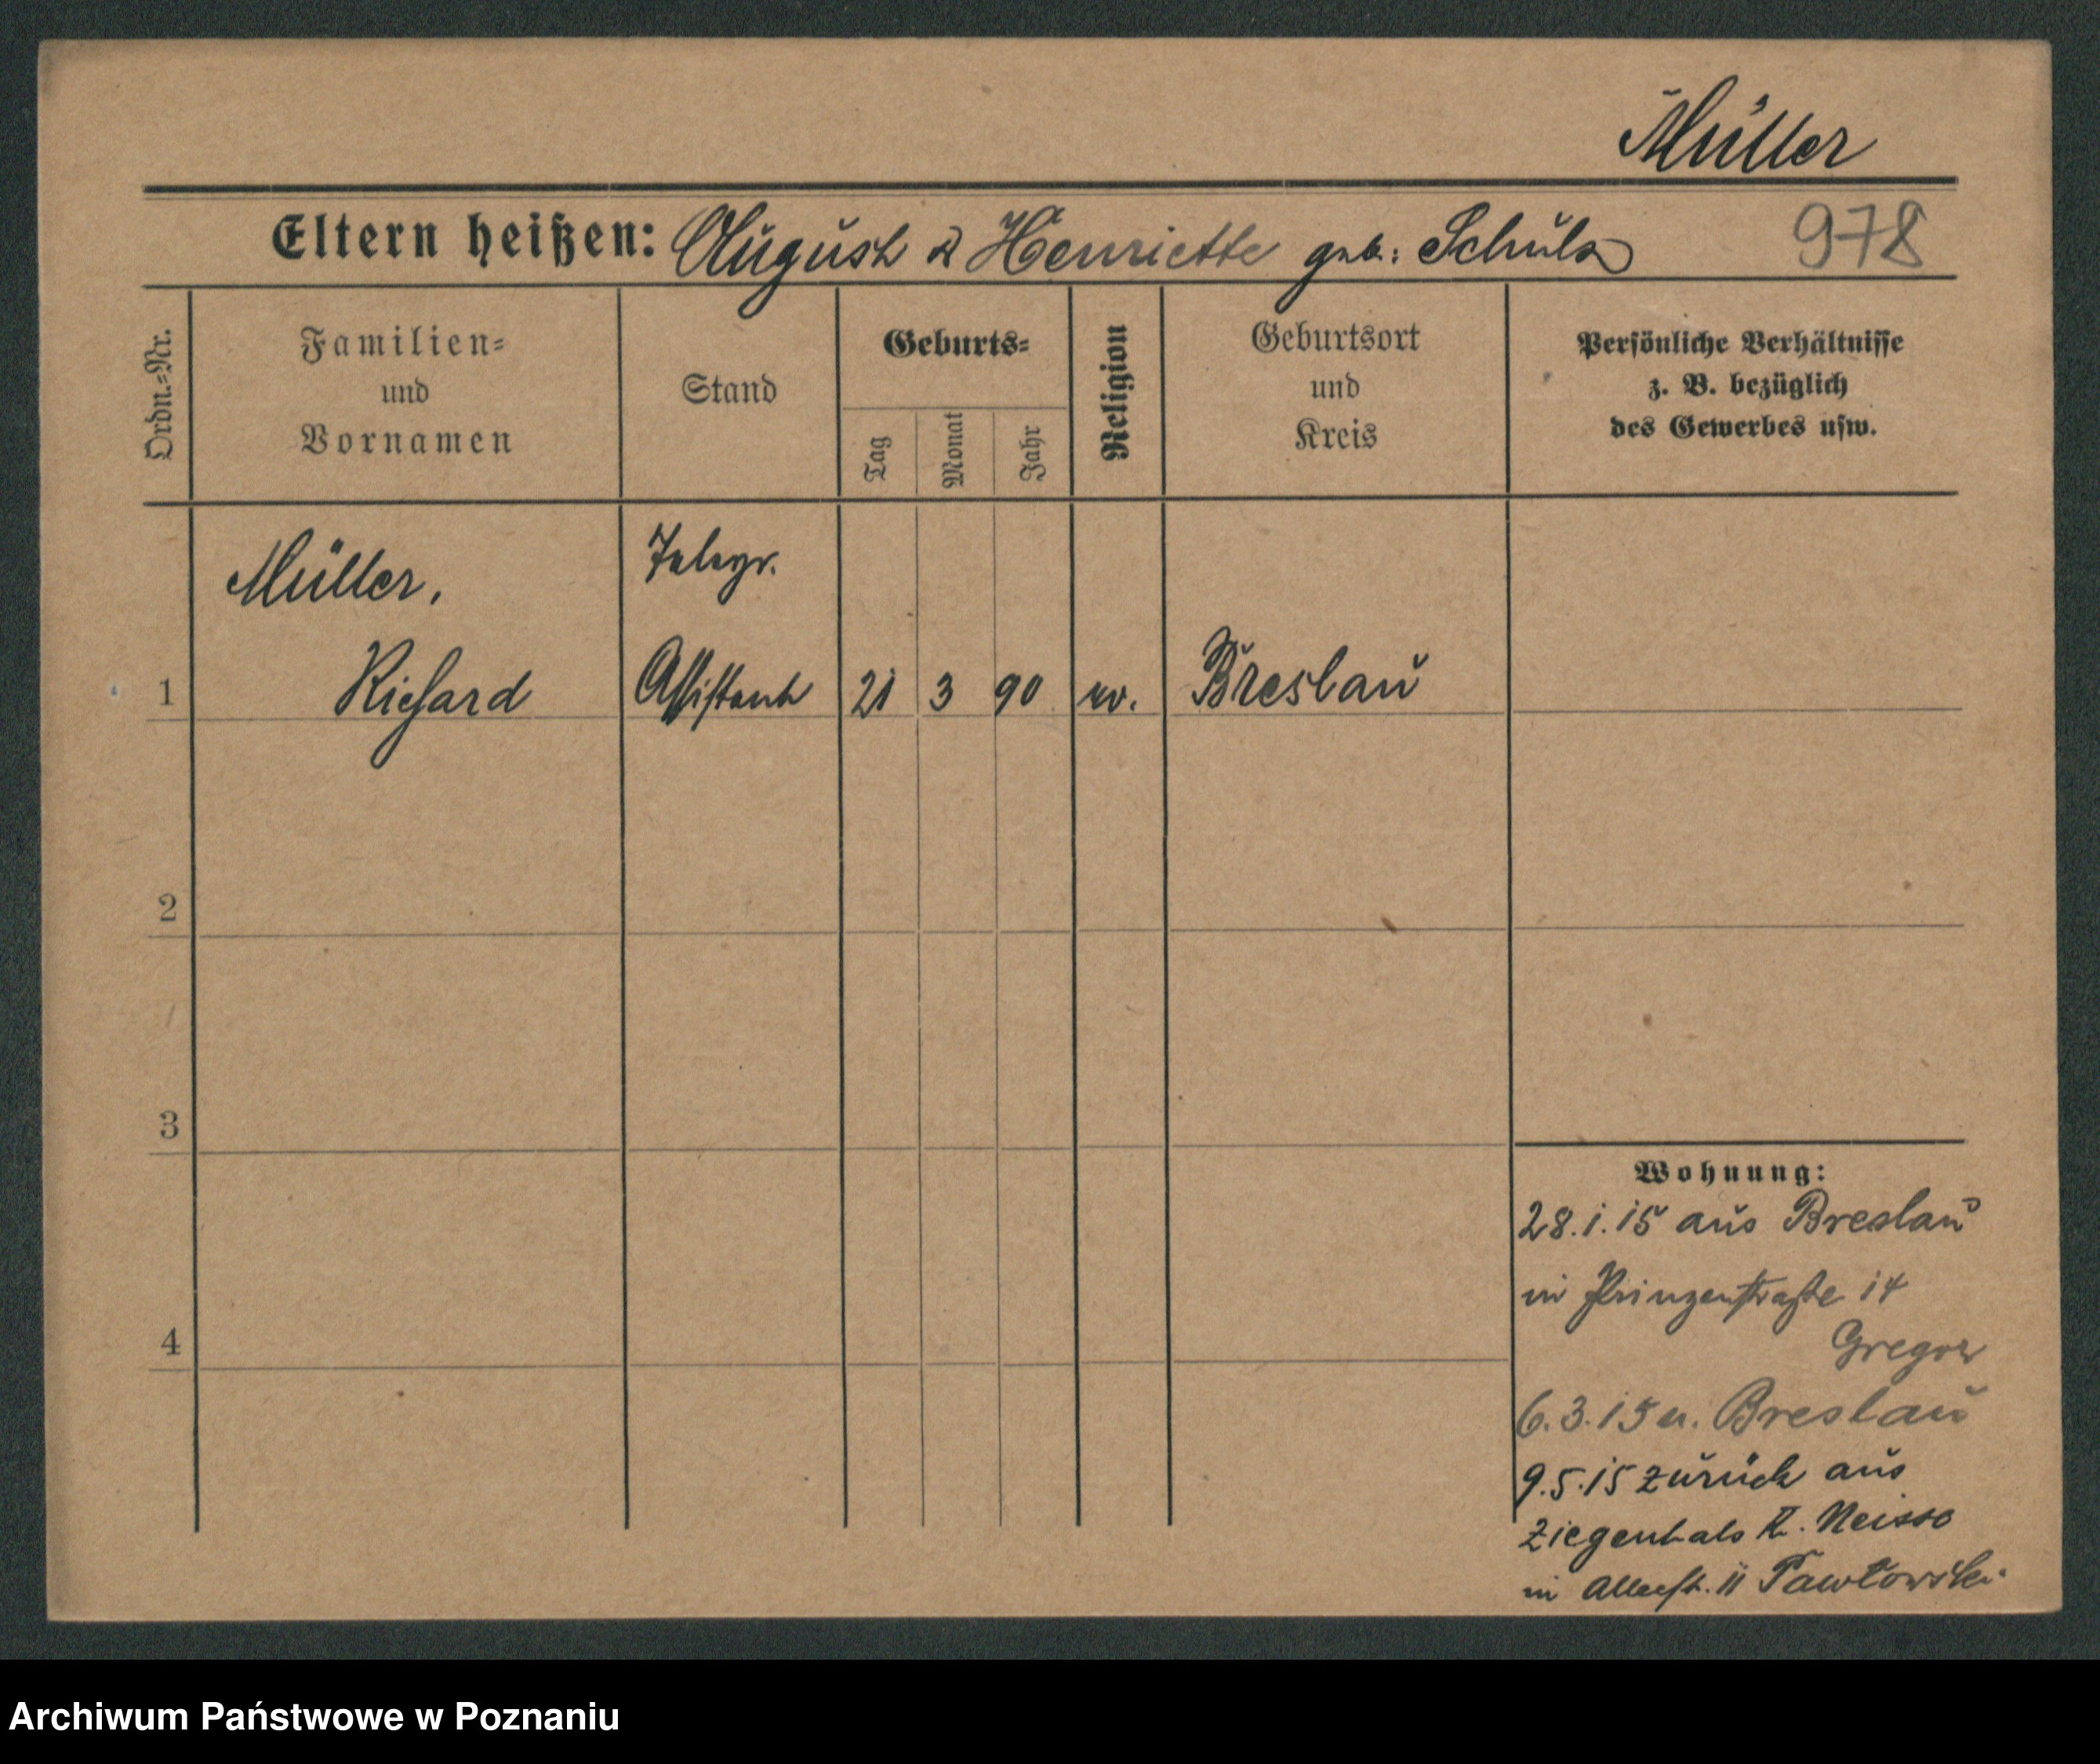 Müller
Eltern heißen: August & Henriette geb: Schulz 978
Ordn.=Nr.
Familien=
und
Vornamen
Stand
Geburts=
Tag
Monat
Jahr
Religion
Geburtsort
und
Kreis
Persönliche Verhältnisse
z. B. bezüglich
des Gewerbes usw.
Müller, Telegr.
1 Richard Assistent 21 3 90 ev. Breslau
2
3
4
Wohnung:
28.1.15 aus Breslau
in Prinzenstraße 14
Gregor
6.3.15 n. Breslau
9.5.15 zurück aus
Ziegenhals K. Neisse
in Allerst. 11 Pawlowski
Archiwum Państwowe w Poznaniu